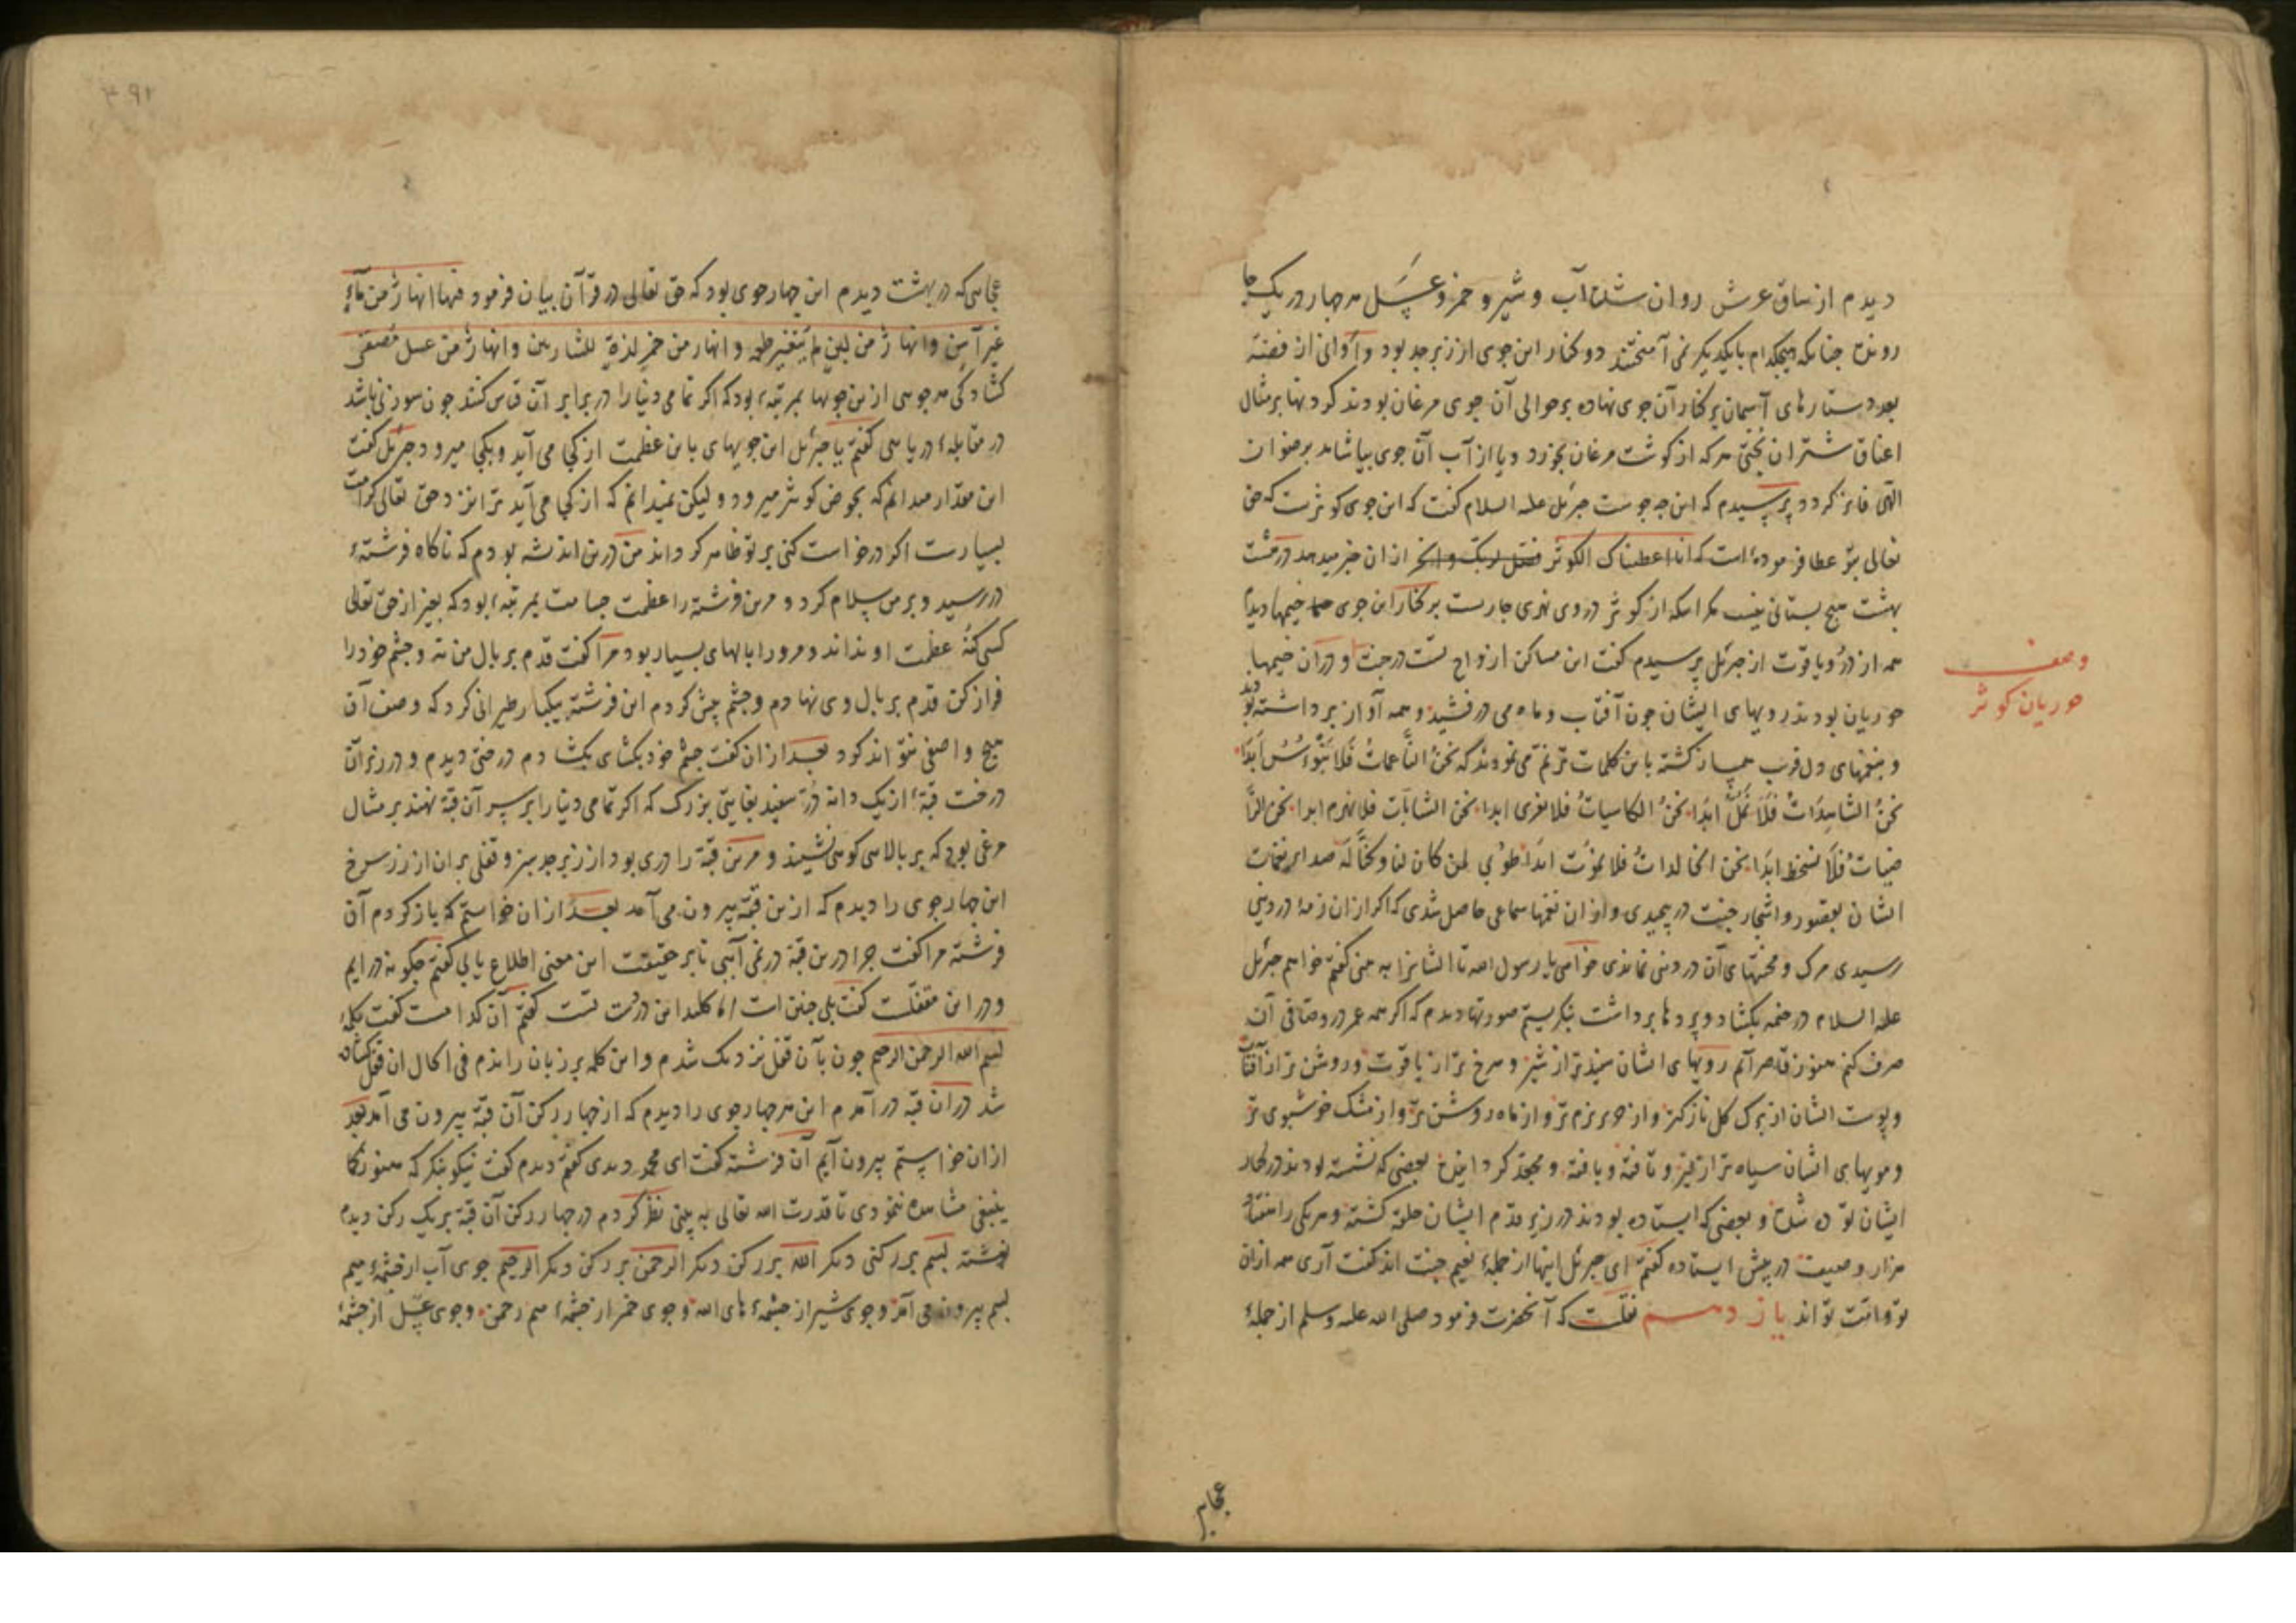 دیدم از ساق عرش روان شده آب و شیر و خمر و عسل هر چهار در یک جا
رونده چنانکه هیچکدام بایکدیکر نمی آمیختند دو کنار این جوی از زبرجد بود و اوانی از فضه
بعدد ستارهای آسمان بر کنار آن جوی نهاده بر حوالی آن جوی مرغان بودند کردنها بر مثال
اعناق شتران بختی هر که از کوشت مرغان بخورد و یا از آب آن جوی بیاشامد برضوان
الهی فایز کردد پرسیدم که این چه جویست جبرئیل علیه السلام کفت که این جوی کوثرست که حق
تعالی بتو عطا فرموده است که انا اعطیناک الکوثر فصل لربک وانحر ازان خبر میدهد در هشت
بهشت هیچ بستانی نیست مکر انکه از کوثر در وی نهری جاریست بر کنار این جوی خیمها دیدم
همه از در و یاقوت از جبرئیل پرسیدم کفت این مساکن ازواج تست در جنت و دران خیمها
وصف
حوریان کوثر
حوریان بودند رویهای ایشان چون آفتاب و ماه می درخشید و همه آواز برداشته بودند
و بنغمهای دل فریب همساز کشته باین کلمات ترنم می نمودند که نحن الناعمات فلا نبؤس ابدا
نحن الشاهدات فلا نمل ابدا نحن الکاسیات فلا نعری ابدا نحن الشابات فلا نهرم ابدا نحن الرا
ضیات فلا نسخط ابدا نحن الخالدات فلا نموت ابدا طوبی لمن کان لنا و کنا له صدای نغمات
ایشان بقصور و اشجار جنت در پیچیدی و ازان نغمها سماعی حاصل شدی که اکر ازان زمزمه در دنیی
رسیدی مرک و محنتهای آن در دنیی نماندی خواهی یا رسول الله تا ایشانرا به بینی کفتم خواهم جبرئیل
علیه السلام در خیمه بکشاد و پردها برداشت نکریستم صورتها دیدم که اکر همه عمر در وصافی آن
صرف کنم هنوز قاصر آیم رویهای ایشان سفیدتر از شیر و سرخ تر از یاقوت و روشن تر از آفتاب
و پوست ایشان از برک کل نازکتر و از حریر نرم تر و از ماه روشن تر و از مشک خوشبوی تر
و مویهای ایشان سیاه تر از قیر و تافته و بافته و مجعد کردانیده بعضی که نشسته بودند در کنار
ایشان توده شده و بعضی که ایستاده بودند در زیر قدم ایشان حلقه کشته و هریکی را هفتاد
هزار وصیفت در پیش ایستاده کفتم ای جبرئیل اینها از جمله نعیم جنت اند کفت آری همه ازان
تو و امت تو اند یازدهم نقلست که آنحضرت فرمود صلی الله علیه وسلم از جمله
عجایب
عجایبی که در بهشت دیدم این چهار جوی بود که حق تعالی در قرآن بیان فرمود فیها انهار من ماء
غیر آسن و انهار من لبن لم یتغیر طعمه و انهار من خمر لذة للشاربین و انهار من عسل مصفی
کشادکی هر جوی ازین جویها بمرتبه بود که اکر تمامی دنیا را در برابر آن قیاس کنند چون سوزنی باشد
در مقابله دریایی کفتم یا جبرئیل این جویهای باین عظمت از کجا می آید و بکجا میرود جبرئیل کفت
این مقدار میدانم که بحوض کوثر میرود و لیکن نمیدانم که از کجا می آید ترا نزد حق تعالی کرامت
بسیارست اکر درخواست کنی بر تو ظاهر کرداند من درین اندیشه بودم که ناکاه فرشته
در رسید و بر من سلام کرد و مرین فرشته را عظمت جسامت بمرتبه بود که بغیر از حق تعالی
کسی کنه عظمت او نداند و مرورا بالهای بسیار بود مرا کفت قدم بر بال من نه و چشم خود را
فراز کن قدم بر بال وی نهادم و چشم پیش کردم این فرشته بیکبار طیرانی کرد که وصف آن
هیچ واصفی نتواند کرد بعد ازان کفت چشم خود بکشای بکشادم درختی دیدم و در زیر آن
درخت قبه از یک دانه در سفید بغایتی بزرک که اکر تمامی دنیا را بر سر آن قبه نهند بر مثال
مرغی بود که بر بالای کوهی نشیند و مرین قبه را دری بود از زبرجد سبز و قفلی بران از زر سرخ
این چهار جوی را دیدم که ازین قبه بیرون می آمد بعد ازان خواستم که باز کردم آن
فرشته مرا کفت چرا درین قبه در نمی آیی تا بر حقیقت این معنی اطلاع یابی کفتم چکونه درایم
و در این مقفلست کفت بلی چنین است اما کلید این در دست تست کفتم آن کدامست کفت کلمه
بسم الله الرحمن الرحیم چون بآن قفل نزدیک شدم و این کلمه بر زبان راندم فی الحال ان قفل کشاده
شد دران قبه درآمدم این هر چهار جوی را دیدم که از چهار رکن آن قبه بیرون می آمد بعد
ازان خواستم بیرون آیم آن فرشته کفت ای محمد دیدی کفتم دیدم کفت نیکو بنکر که هنوز کما
ینبغی مشاهده ننمودی تا قدرت الله تعالی به بینی نظر کردم در چهار رکن آن قبه بر یک رکن دیدم
نوشته بسم بر رکنی دیکر الله بر رکن دیکر الرحمن بر رکن دیکر الرحیم جوی آب از چشمه میم
بسم بیرون می آمد و جوی شیر از چشمه های الله و جوی خمر از چشمه میم رحمن و جوی عسل از چشمه